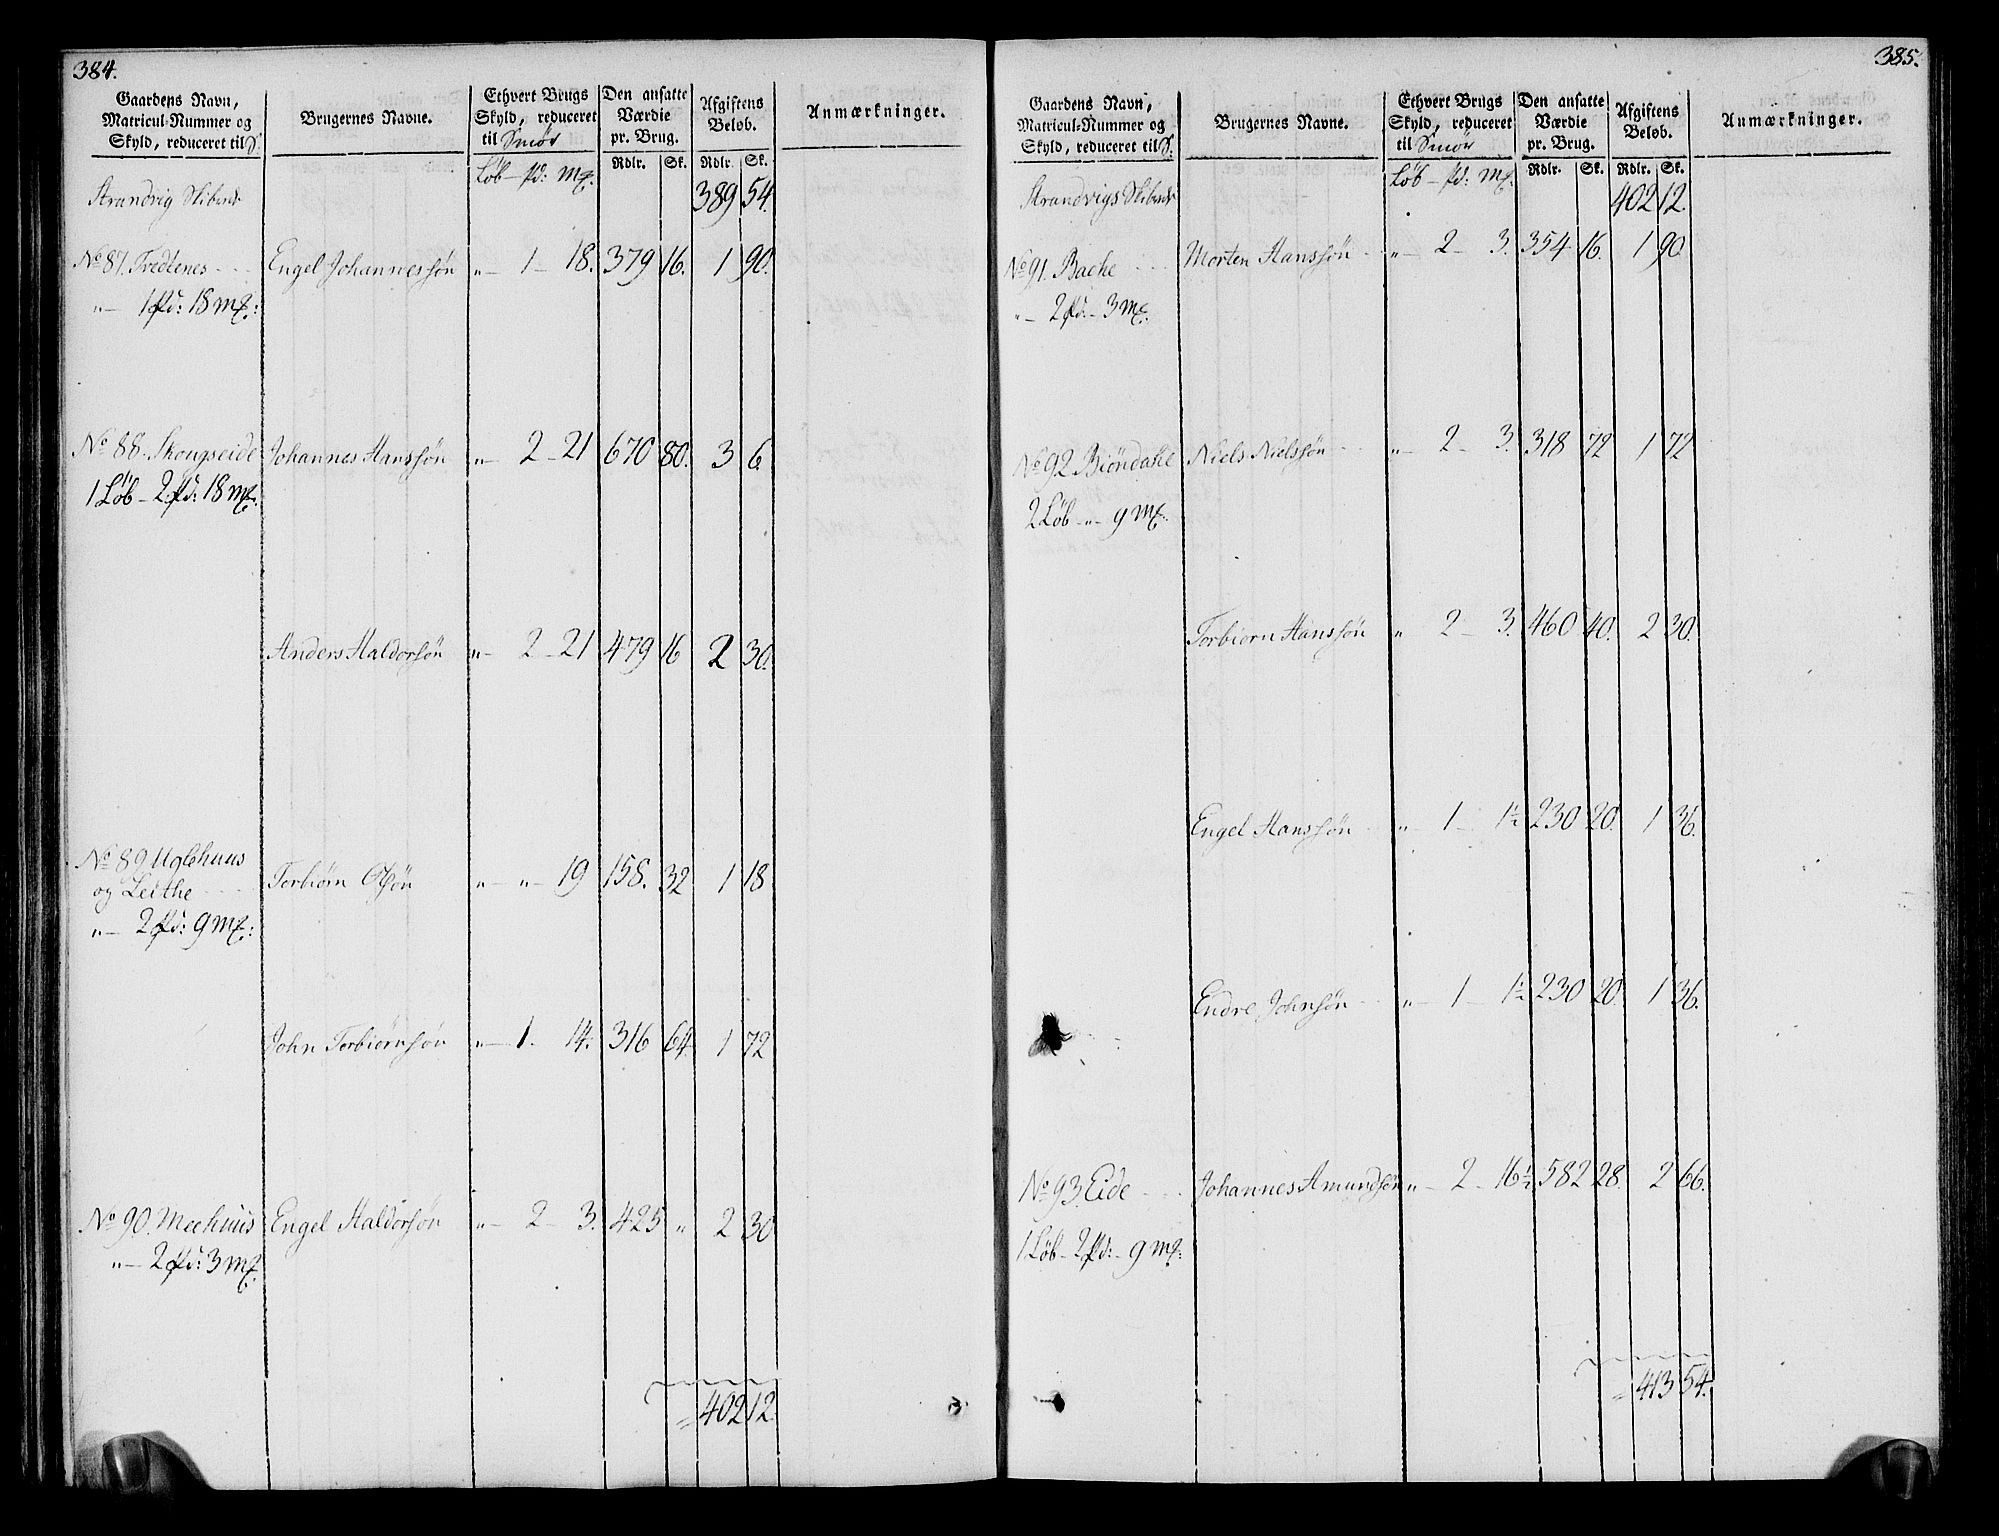 384.
Gaardens Navn, Matricul-Nummer og Skyld, reduceret til S. | Brugernes Navne. | Ethvert Brugs Skyld, reduceret til Smør | Den ansatte Værdie pr. Brug. | Afgiftens Beløb. | Anmærkninger.
Løb – pd: Mk: | Rdlr. | Sk. | Rdlr. | Sk.
Strandvig Skibrd: 389 54.
No 87. Tredtenes Engel Johannessøn " – 1 – 18. 379 16. 1 90.
" – 1 pd: 18 mk:
No 88. Skougseide Johannes Hanssøn " – 2 – 21 670 80. 3 6.
1 Løb – 2 pd: 18 mk:
Anders Haldorsøn " – 2 – 21 479 16 2 30.
No 89 Uglehuus
og Leithe Torbiørn Olsøn " – " – 19 158. 32 1 18
" – 2 pd: 9 mk:
John Torbiørnsøn " – 1. 14. 316 64 1 72
No 90. Meehuus Engel Haldorsøn " – 2 – 3. 425 " 2 30
" – 2 pd: 3 mk:
= 402 12.
385.
Gaardens Navn, Matricul-Nummer og Skyld, reduceret til S. | Brugernes Navne. | Ethvert Brugs Skyld, reduceret til Smør | Den ansatte Værdie pr. Brug. | Afgiftens Beløb. | Anmærkninger.
Løb – pd: Mk: | Rdlr. | Sk. | Rdlr. | Sk.
Strandvigs Skibrd: 402 12.
No 91. Bache Morten Hanssøn " – 2 – 3. 354 16. 1 90.
" – 2 pd: – 3 mk:
No 92 Biøndahl Niels Nielssøn " – 2 – 3. 318 72 1 72
2 Løb – " – 9 mk:
Torbiørn Hanssøn " 2 – 3. 460 40. 2 30.
Engel Hanssøn " – 1 – 1½ 230 20. 1 36.
Endre Johnsøn " – 1 – 1½ 230 20. 1 36.
No 93. Eide Johannes Amundsøn " – 2 – 16½ 582 28. 2 66.
1 Løb – 2 pd: – 9 mk:
= 413 54.